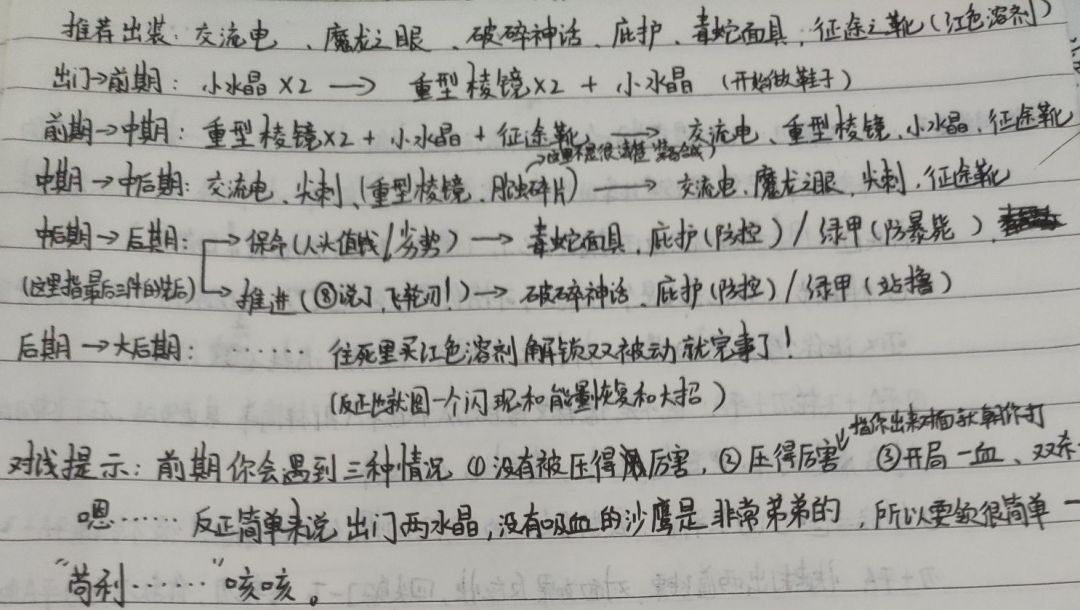 推荐出装：交流电、魔龙之眼、破碎神话、庇护、毒蛇面具，征途之靴（红色溶剂）
出门→前期：小水晶×2 → 重型棱镜×2 + 小水晶（开始做鞋子）
前期→中期：重型棱镜×2 + 小水晶 + 征途靴 → 交流电、重型棱镜、小水晶、征途靴
→这里不是很清楚
中期→中后期：交流电、尖刺、（重型棱镜、碎片） → 交流电、魔龙之眼、尖刺、征途靴
中后期→后期：→保命（人头值钱/劣势）→ 毒蛇面具，庇护（防控）/绿甲（防暴毙）、
（这里指最后三件的先后）→推进（⑧说了，飞轮刃！）→ 破碎神话、庇护（防控）/绿甲（站撸）
后期→大后期：…… 往死里买红色溶剂 解锁双被动就完事了！
（反正也就图一个闪现和能量恢复和大招）
指你出来对面就朝你打
对线提示：前期你会遇到三种情况 ①没有被压得厉害，②压得厉害 ③开局一血、双杀
嗯…… 反正简单来说，出门两水晶，没有吸血的沙鹰是非常弟弟的，所以要欸很简单一
“苟利……”咳咳。